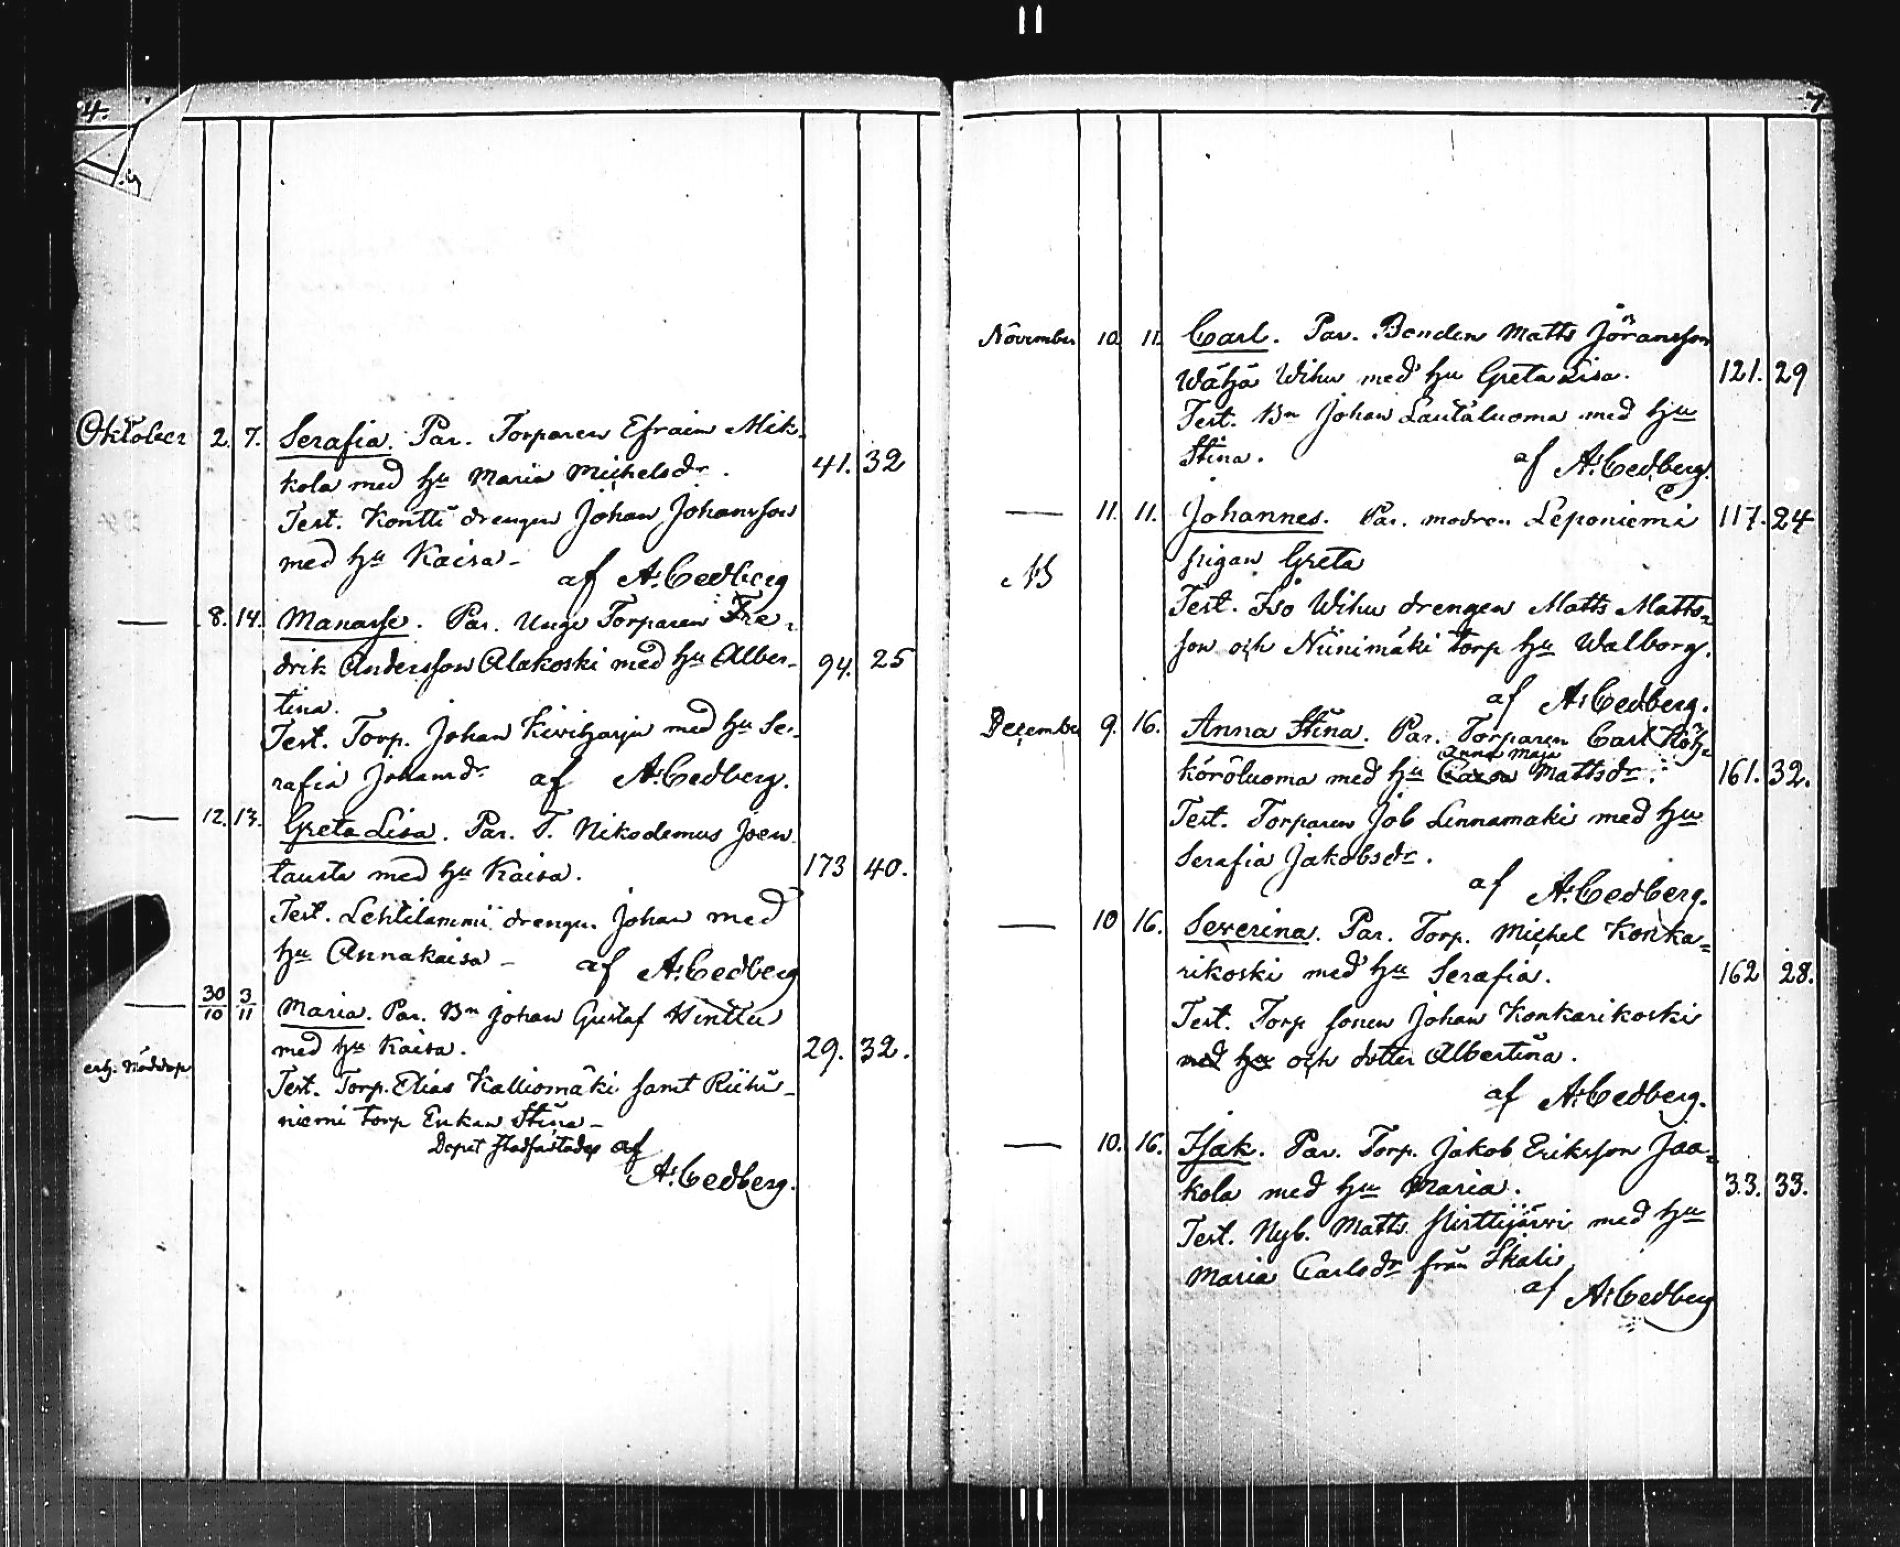 4.
Oktober 2. 7. Serafia. Par. Torparen Efraim Mik-
kola med hu Maria Michelsdr. 41. 32
Test. Kontti drengen Johan Johansson
med hu Kaisa -
af A. Cedberg
— 8. 14. Manasse. Par. Unge Torparen Fre-
drik Andersson Alakoski med hu Alber- 94. 25
tina.
Test. Torp. Johan Kiviharju med hu Se-
rafia Johansdr af A. Cedberg.
— 12. 13. Greta Lisa. Par. T. Nikodemus Joen
tausta med hu Kaisa. 173 40.
Test. Lehtilammi drengen Johan med
hu Annakaisa -
af A. Cedberg
— 30/10 3/11 Maria. Par. Bn Johan Gustaf Hinttu
med hu Kaisa. 29. 32.
erh. Nöddop
Test. Torp. Elias Kalliomäki samt Riihi-
niemi torp Enkan Stina -
Dopet stadfästades af
A. Cedberg.
7
November 10. 11. Carl. Par. Bonden Matts Jöransson
Wähä Wihu med hu Greta Lisa. 121. 29
Test. Bn Johan Lautaluoma med hu
Stina. af A. Cedberg.
— 11. 11. Johannes. Par. modren Leponiemi 117. 24
NB pigan Greta
Test. Iso Wihu drengen Matts Matts-
son och Niinimäki torp hu Walborg.
af A. Cedberg.
December 9. 16. Anna Stina. Par. Torparen Carl
Anna Maja
köröluoma med hu Caisa Mattsdr. 161. 32.
Test. Torparen Job Linnamäki med hu
Serafia Jakobsdr.
af A. Cedberg.
— 10 16. Severina. Par. Torp. Michel Konka-
rikoski med hu Serafia. 162 28.
Test. Torp sonen Johan Konkarikoski
med hu och dotter Albertina.
af A. Cedberg.
— 10. 16. Isak. Par. Torp. Jakob Eriksson Jaa-
kola med hu Maria. 33. 33.
Test. Nyb. Matts Nirttijärvi med hu
Maria Carlsdr från Skali
af A. Cedberg